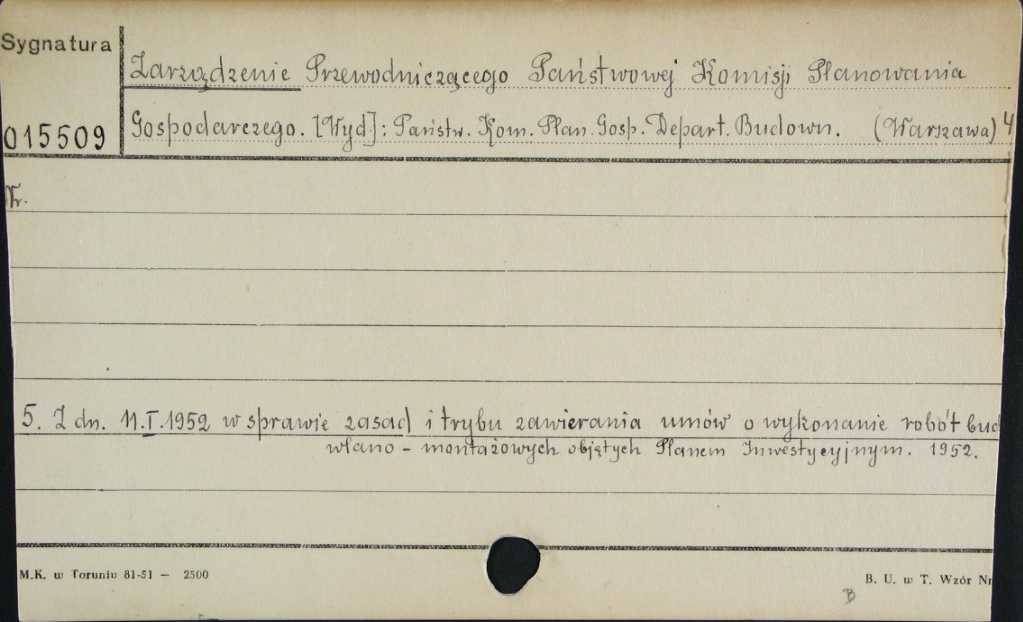 Sygnatura
Zarządzenie Przewodniczącego Państwowej Komisji Planowania
015509 Gospodarczego. [Wyd]: Państw. Kom. Plan. Gosp. Depart. Budown. (Warszawa) 4
Nr.
5. Z dn. 11.I.1952 w sprawie zasad i trybu zawierania umów o wykonanie robót bud
wlano - montażowych objętych Planem Inwestycyjnym. 1952.
M.K. w Toruniu 81-51 — 2500
B. U. w T. Wzór Nr
B